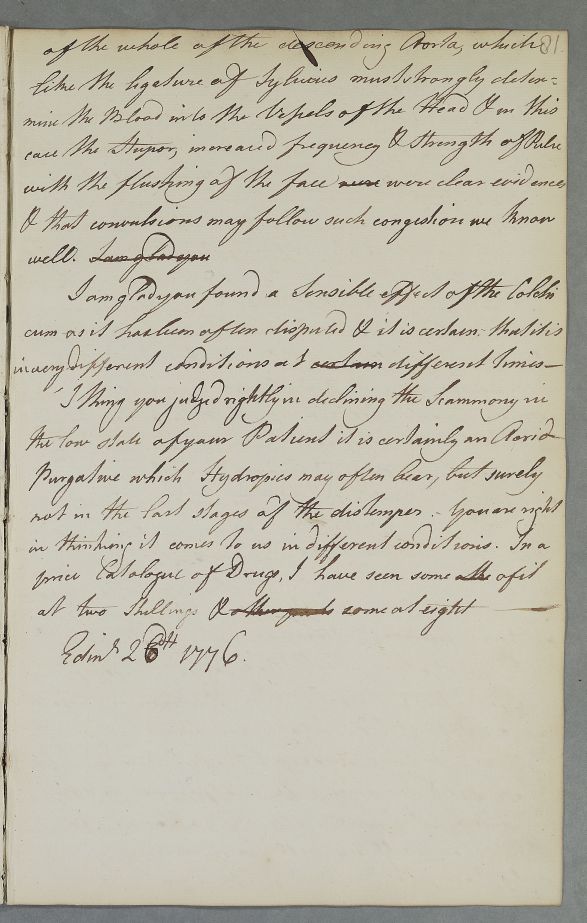 of the whole of the descending Aorta, which 18
like the ligature of Sylvius must strongly deter=
mine the Blood into the Vessels of the Head & in this
case the Stupor, increased frequency & Strength of Pulse
with the flushing of the face were were clear evidences
& that convulsions may follow such congestion we know
well. I am glad you
I am glad you found a Sensible effect of the Colchi
cum as it has been often disputed & it is certain that it is
in very different conditions at certain different times —
I thing you judged rightly in declining the Scammony in
the low state of your Patient it is certainly an Acrid
Purgative which Hydropics may often bear, but surely
not in the last stages of the distemper - You are right
in thinking it comes to us in different conditions. In a
price Catalogue of Drugs, I have seen some of it
at two Shillings & some at eight —
Edinr 1776.